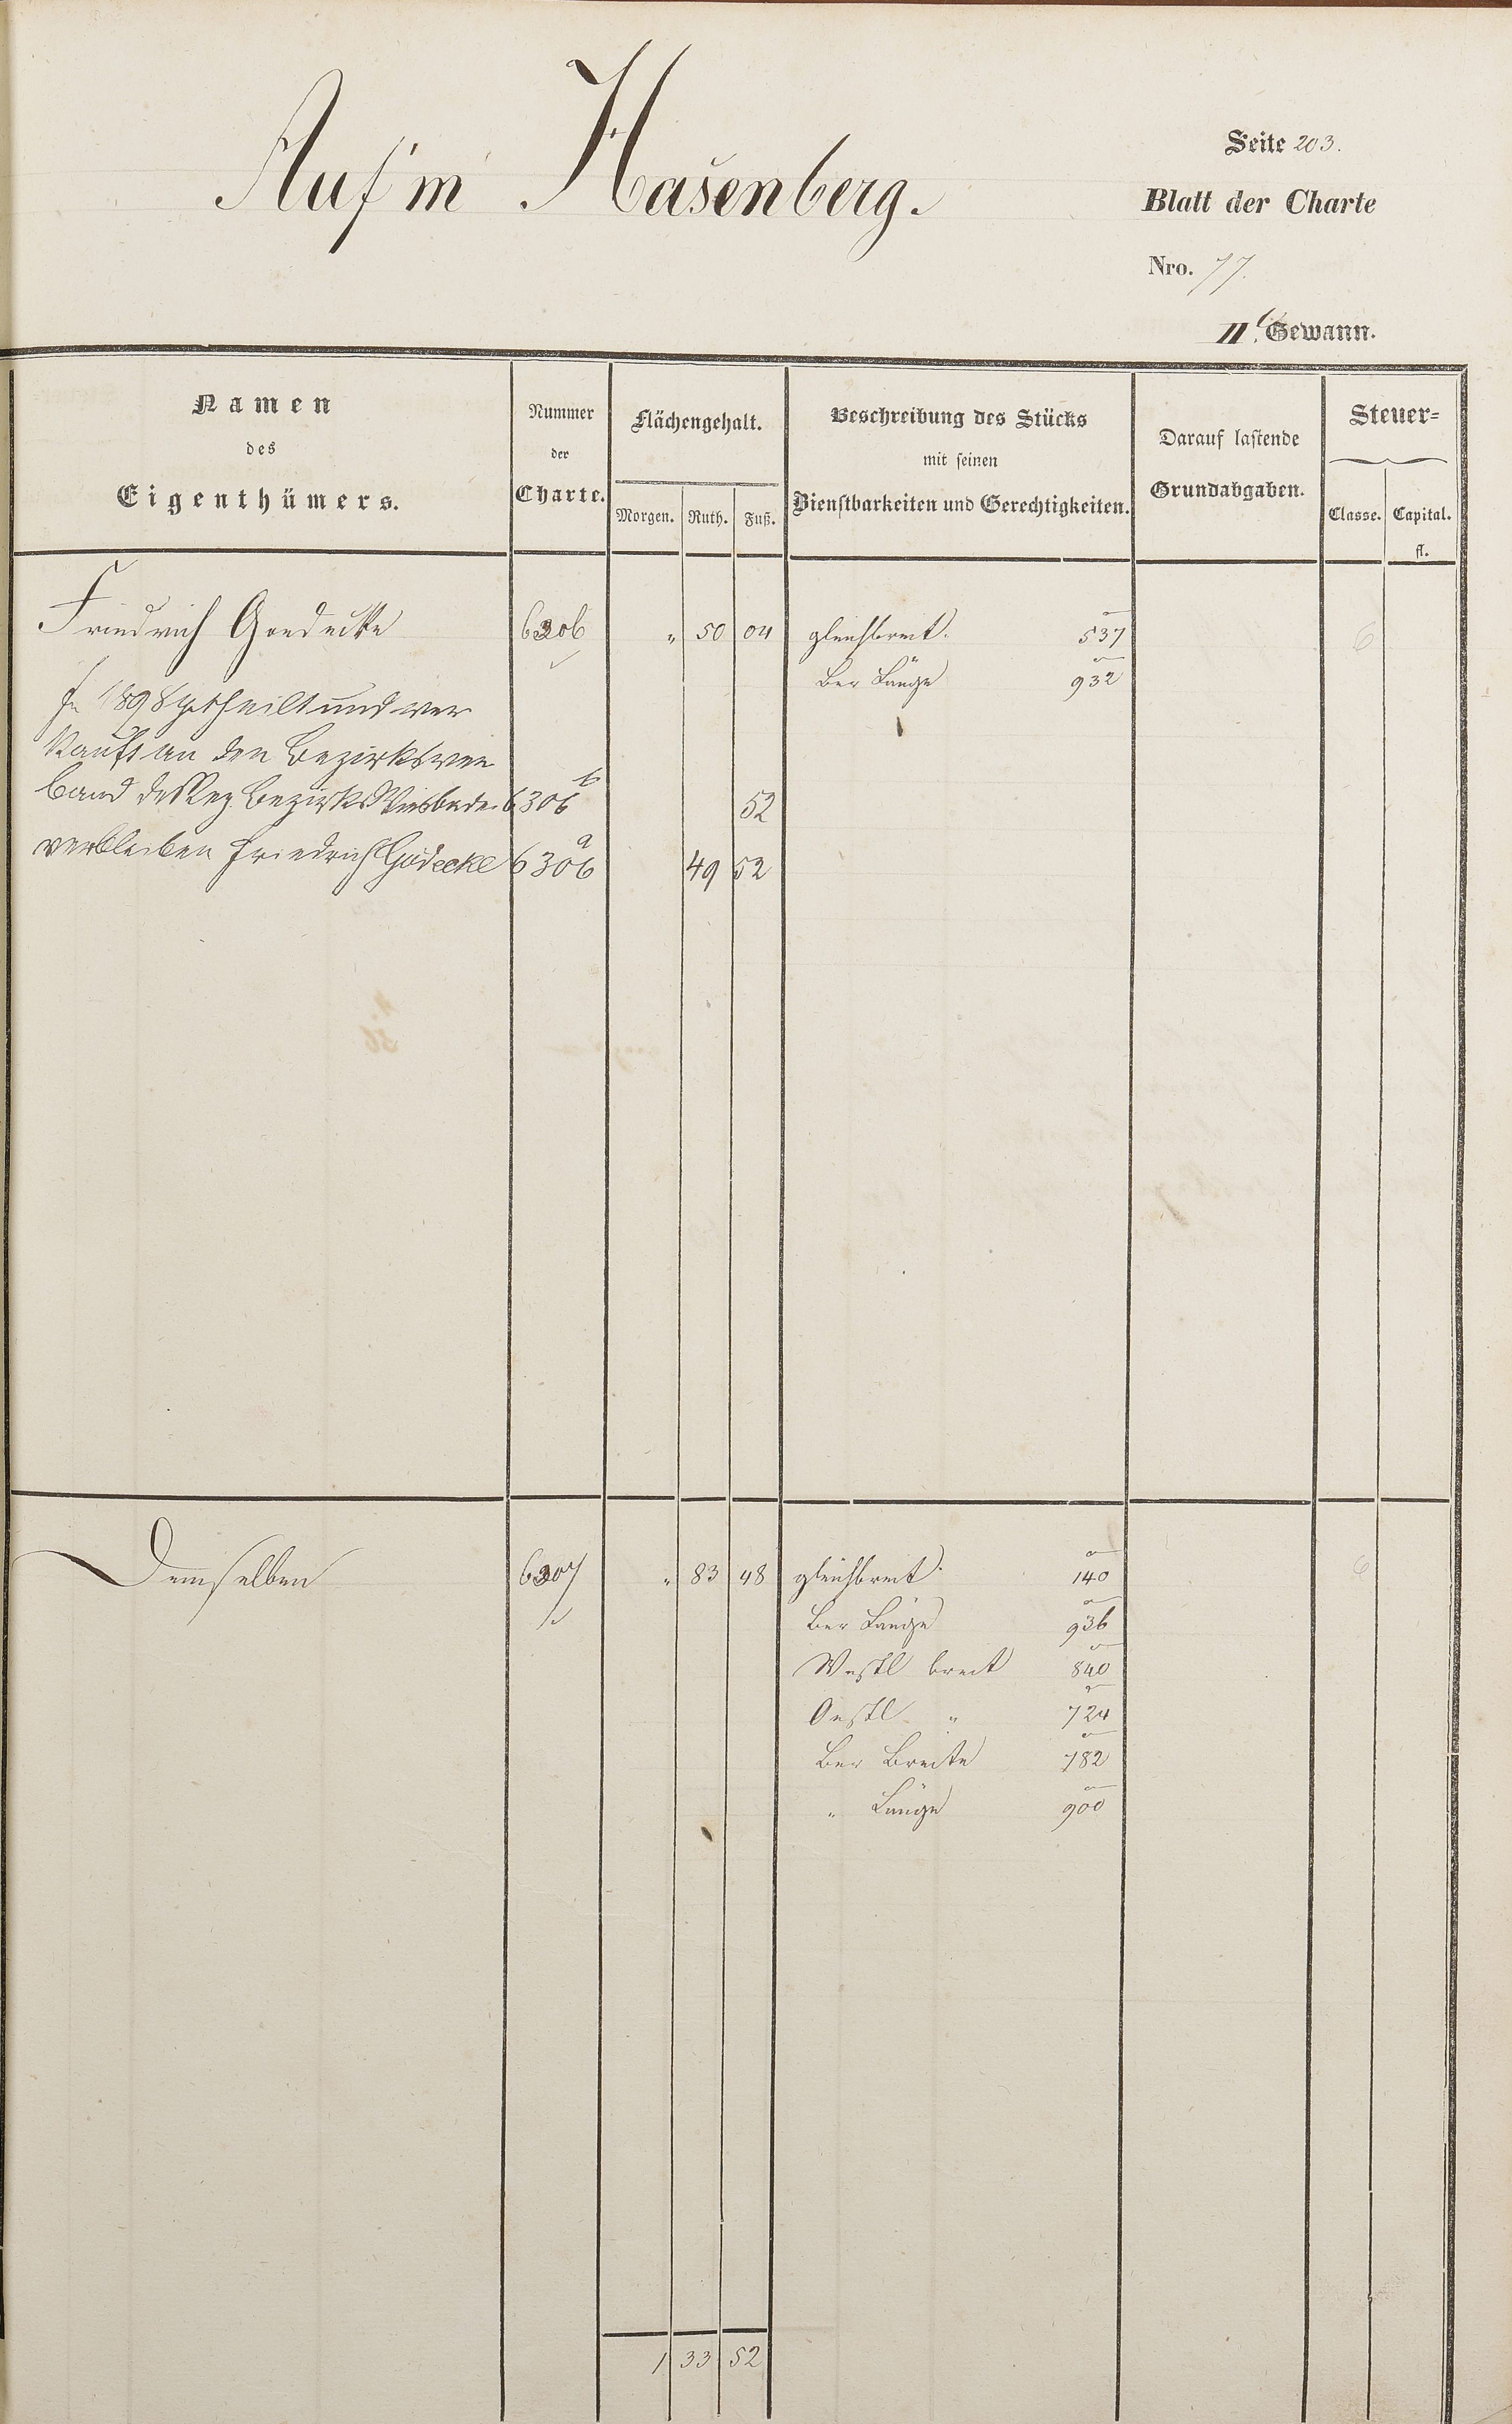 Auf'm Hasenberg.
Seite 203.
Blatt der Charte
Nro. 77.
II Gewann.
Namen
des
Eigenthümers.
Nummer
der
Charte.
Flächengehalt.
Morgen. Ruth. Fuß.
Beschreibung des Stücks
mit seinen
Dienstbarkeiten und Gerechtigkeiten.
Darauf lastende
Grundabgaben.
Steuer=
Classe. Capital.
fl.
Friedrich Goedecke 6306 " 50 04 gleichbreit. 537 6
Ber Länge 932
1898 getheilt und ver
kauft an den Bezirksver
band des Reg. Bezirks Wiesbaden 6306 b 52
verbleiben Friedrich Gödecke 6306 a 49 52
Demselben 6307 " 83 48 gleichbreit. 140 6
Ber Länge 936
Westl breit 840
Oestl " 724
Ber Breite 782
" Länge 900
1 33 52